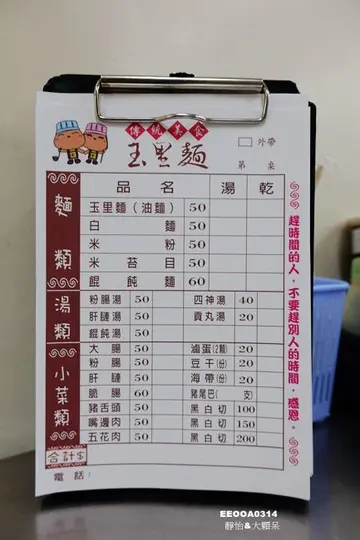 傳統美食
玉里麵
外帶
第 桌
品名 湯 乾
麵類
玉里麵（油麵） 50
白麵 50
米粉 50
米苔目 50
餛飩麵 60
湯類
粉腸湯 50 四神湯 40
肝腱湯 50 貢丸湯 20
餛飩湯 50
小菜類
大腸 50 滷蛋(2顆) 20
粉腸 50 豆干(份) 20
肝腱 50 海帶(份) 20
脆腸 60 豬尾巴( 支)
豬舌頭 50 黑白切 100
嘴邊肉 50 黑白切 150
五花肉 50 黑白切 200
合計$
電話：
趕時間的人，不要趕別人的時間，感恩。
EEOOA0314
靜怡&大顆呆